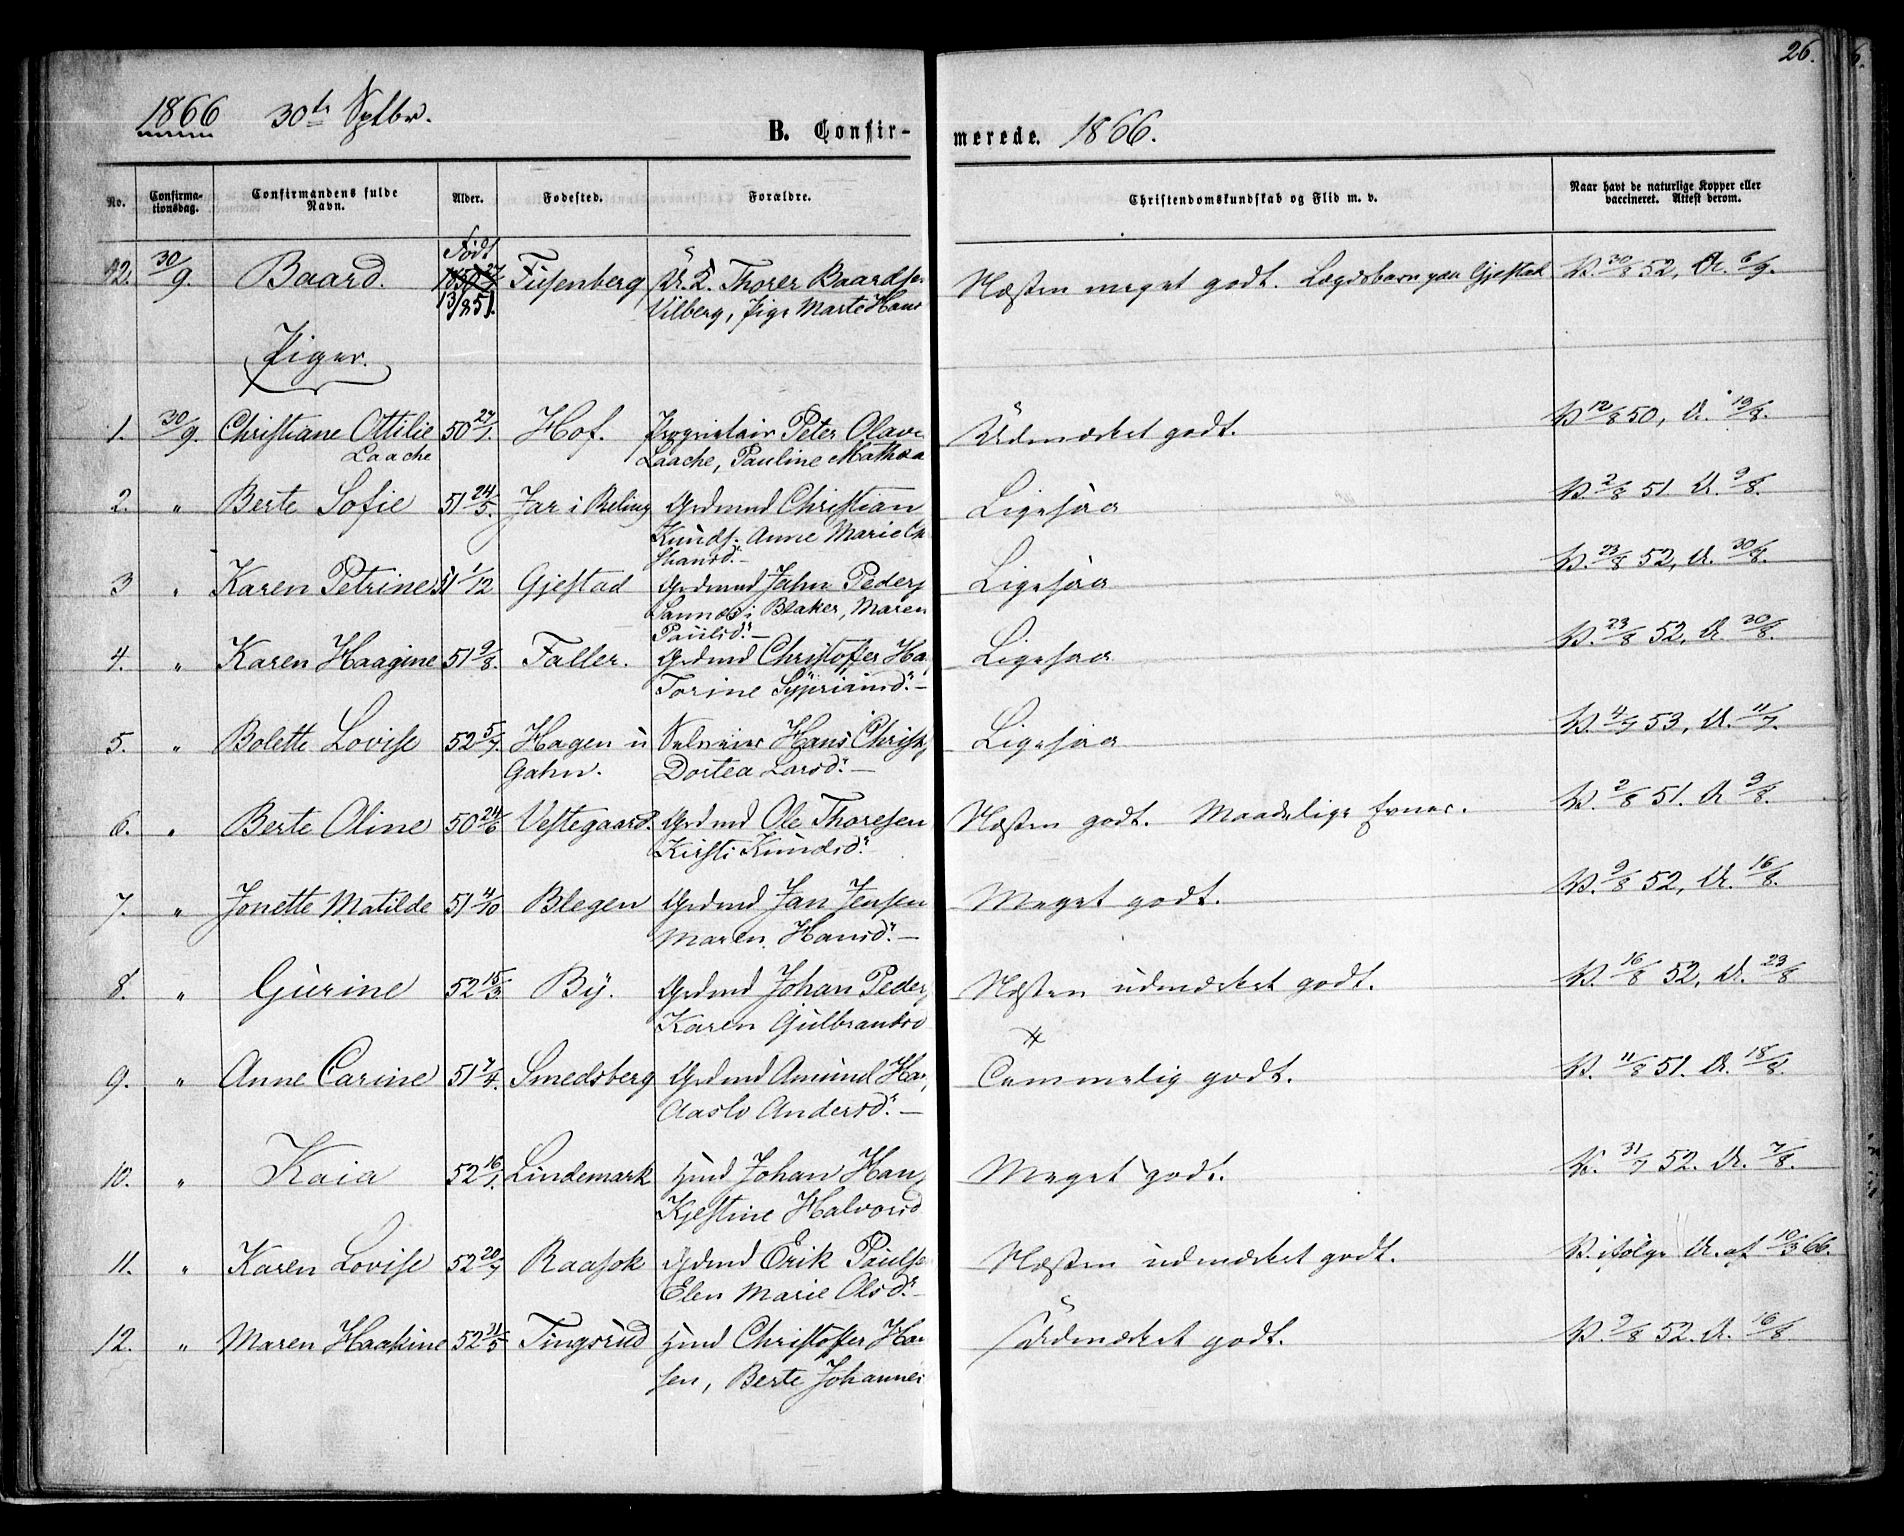 26.
1866 30te Sptbr.
B. Confir- merede. 1866.
No. Confirma- tionsdag. Confirmandens fulde Navn. Alder. Fødested. Forældre. Christendomskundskab og Flid m. v. Naar havt de naturlige Kopper eller vaccineret. Attest derom.
Født
12. 30/9. Baard. 13/8 51. Fusenberg U. K. Thorer Baardsen Næsten meget godt. Lægdsbarn paa Gjestad V. 30/8 52, A. 6/9.
Vilberg, Pige Marte Hans
Piger.
1. 30/9. Christiane Ottilie 50 27/1. Hof. Proprietair Peter Olave Udmærket godt. V. 12/8 50, A. 19/8.
Laache Laache, Pauline Mathea
2. " Berte Sofie 51 24/5. Jar i Reling Grdmnd Christian Ligesaa V. 2/8 51. A. 9/8.
Knuds. Anne Marie Ch
stiansd. -
3 " Karen Petrine 51 1/12 Gjestad Grdmnd Jahn Peders Ligesaa V. 23/8 52, A. 30/8.
Sannes i Blaker, Maren
Paulsd. -
4. " Karen Haagine 51 9/8. Faller. Grdmd Christoffer Ha Ligesaa V. 23/8 52, A. 30/8.
Torine Sypriand. -
5. " Bolette Lovise 52 5/7. Hagen u Selveier Hans Christ Ligesaa V. 4/7 53, A. 11/7.
Gahn. Dortea Larsd. -
6. " Berte Oline 50 24/6 Vestegaard. Grdmd Ole Thoresen Næsten godt. Maadelige Evner. V. 2/8 51. A 9/8.
Kirsti Knudsd. -
7. " Jonette Matilde 51 4/10 Blegen Grdmd Jan Jensen Meget godt. V. 9/8 52, A. 16/8.
Maren Hansd. -
8. " Gurine 52 15/3. By. Grdmd Johan Peder Næsten udmærket godt. V. 16/8 52, A. 23/8
Karen Gulbrandsd
9. " Anne Carine 51 7/4. Smedsberg Grdmd Amund Han Temmelig godt. V. 11/8 51. A. 18/8.
Aaslo Andersd. -
10. " Kaia 52 16/1. Lindemark Hmd Johan Han Meget godt. V. 31/7 52. A. 7/8.
Kjestine Halvorsd
11. " Karen Lovise 52 20/7 Raasok Grdmd Erik Paulse Næsten udmærket godt. V. ifølge A. af 10/3 66.
Elen Marie Olsd. -
12. " Maren Haakine 52 31/5 Tingsrud Hmd Christoffer Han Udmærket godt. V. 9/8 52. A. 16/8
sen, Berte Johannes